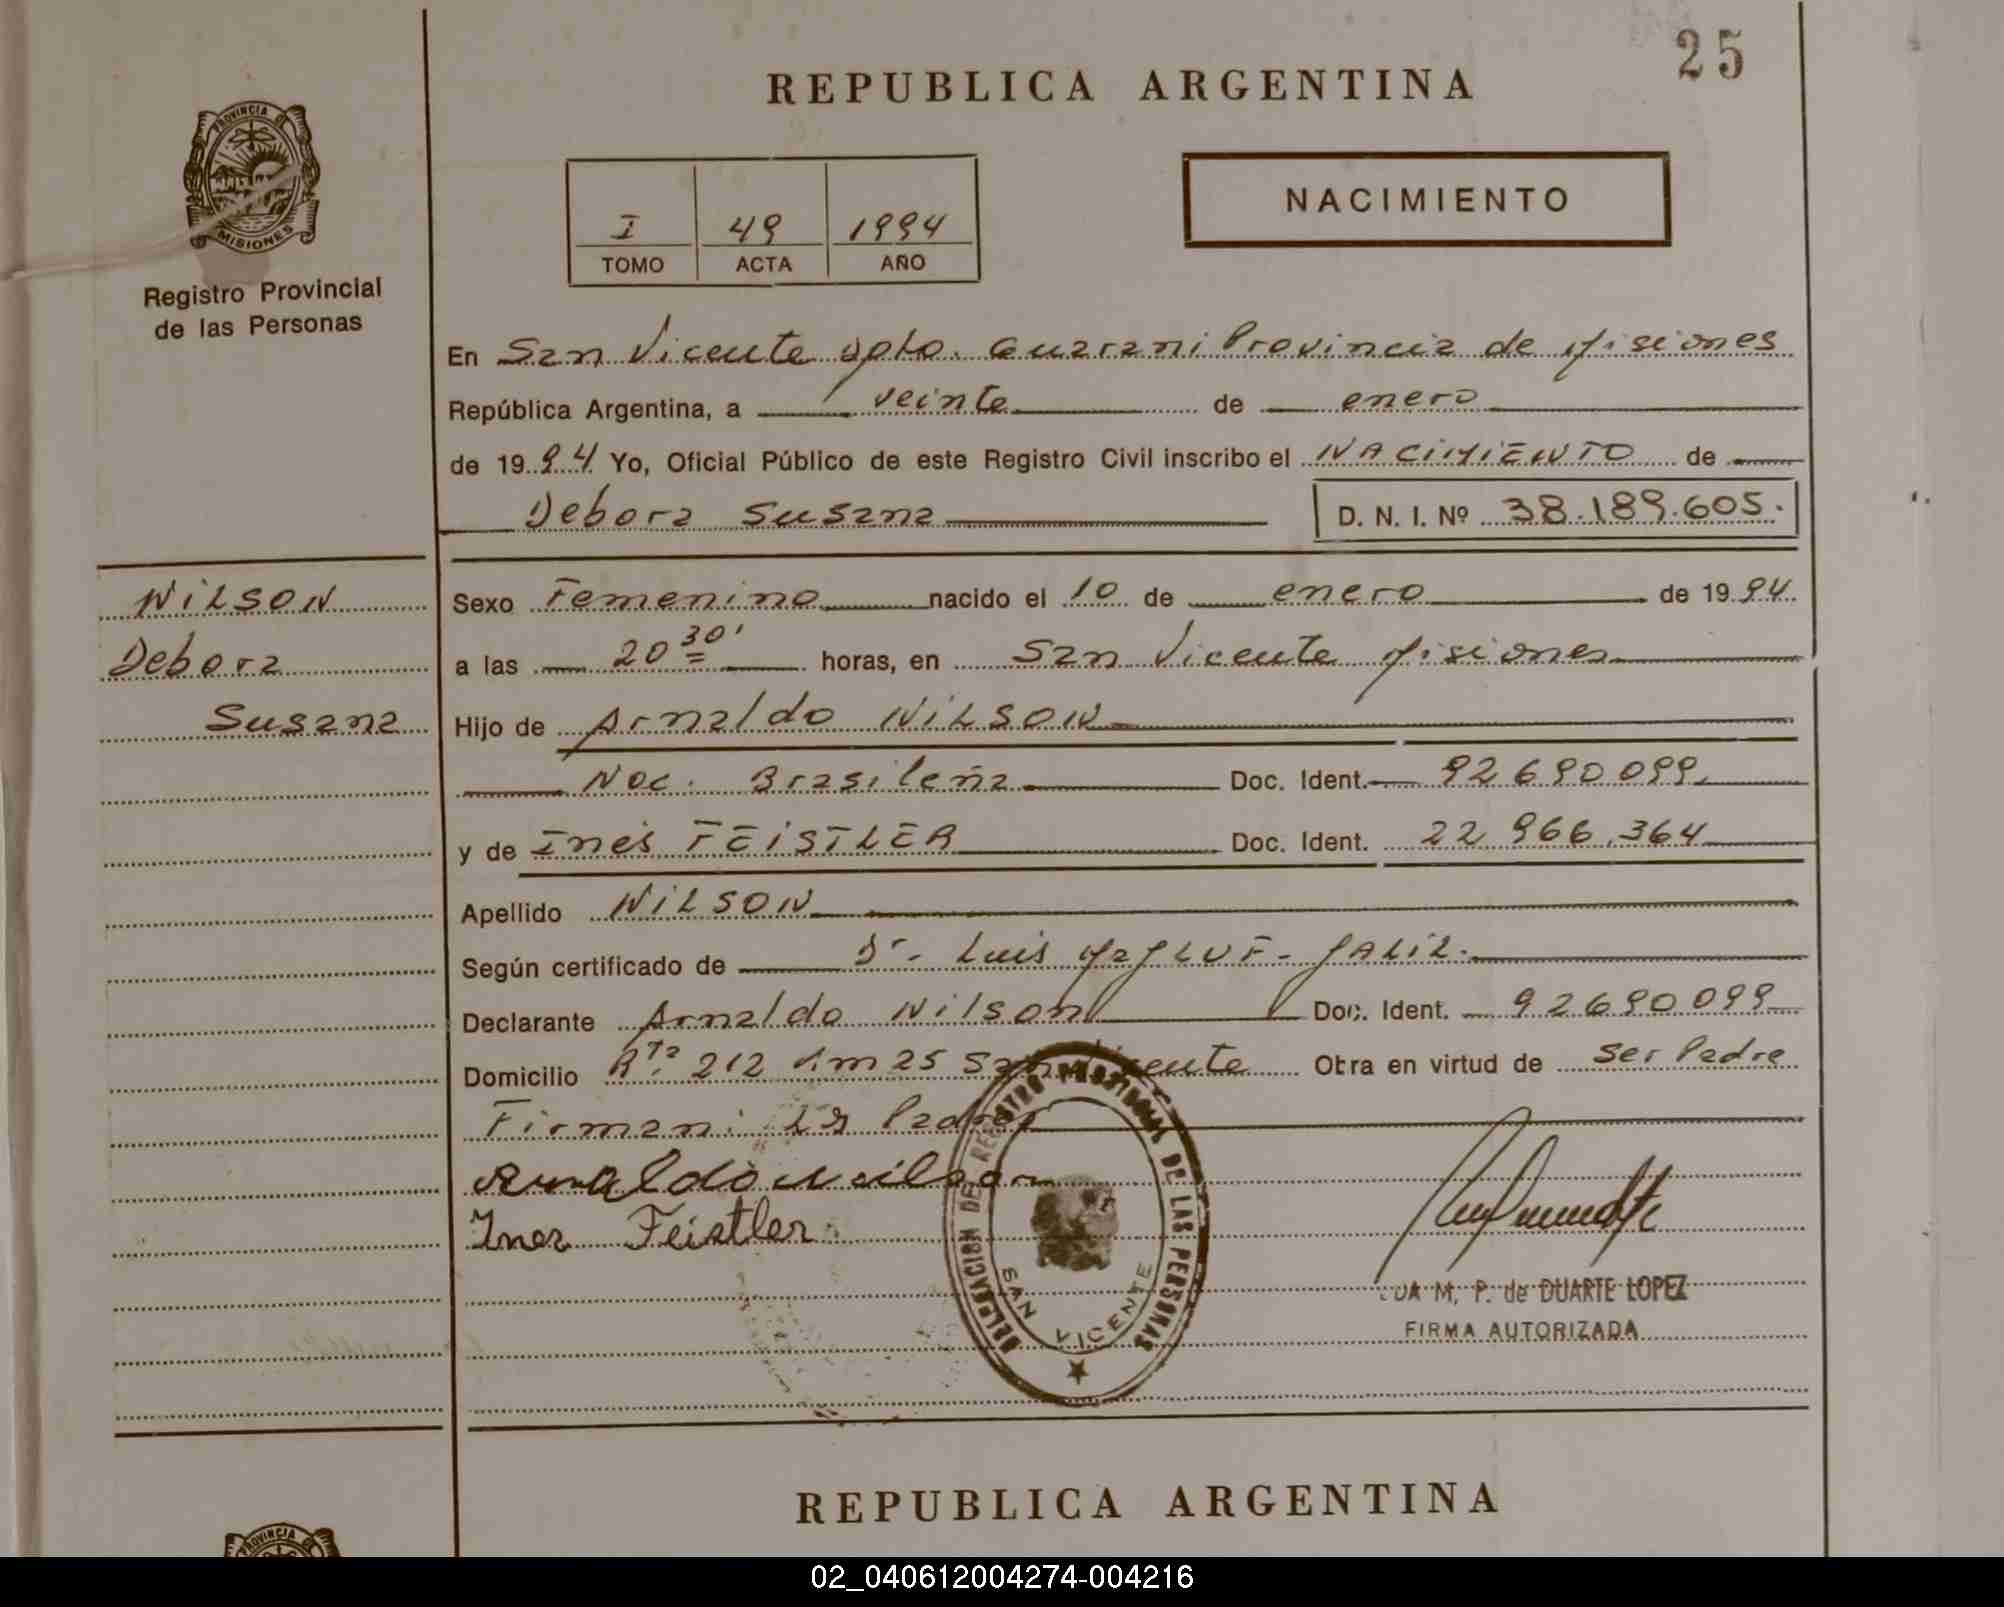 25
REPUBLICA ARGENTINA
PROVINCIA DE
MISIONES
Registro Provincial
de las Personas
I 49 1994
TOMO ACTA AÑO
NACIMIENTO
En San Vicente Dpto. Guarani Provincia de Misiones
República Argentina, a veinte de enero
de 1994 Yo, Oficial Público de este Registro Civil inscribo el NACIMIENTO de
Debora Susana D. N. I. Nº 38.189.605.
WILSON
Debora
Susana
Sexo Femenino nacido el 10 de enero de 1994.
a las 20 30' horas, en San Vicente Misiones
Hijo de Arnaldo WILSON
Nac. Brasileña Doc. Ident. 92690099.
y de Inés FEISTLER Doc. Ident. 22 966.364
Apellido WILSON
Según certificado de Dr. Luis JALIL.
Declarante Arnaldo Wilson Doc. Ident. 92690099
Domicilio Rta. 212 Km 25 San Vicente Otra en virtud de ser Padre
Firman: Padres
Arnaldo Wilson
Ines Feistler
DELEGACION DE REGISTRO PROVINCIAL DE LAS PERSONAS
SAN VICENTE
M. P. de DUARTE LOPEZ
FIRMA AUTORIZADA
REPUBLICA ARGENTINA
PROVINCIA
02_040612004274-004216